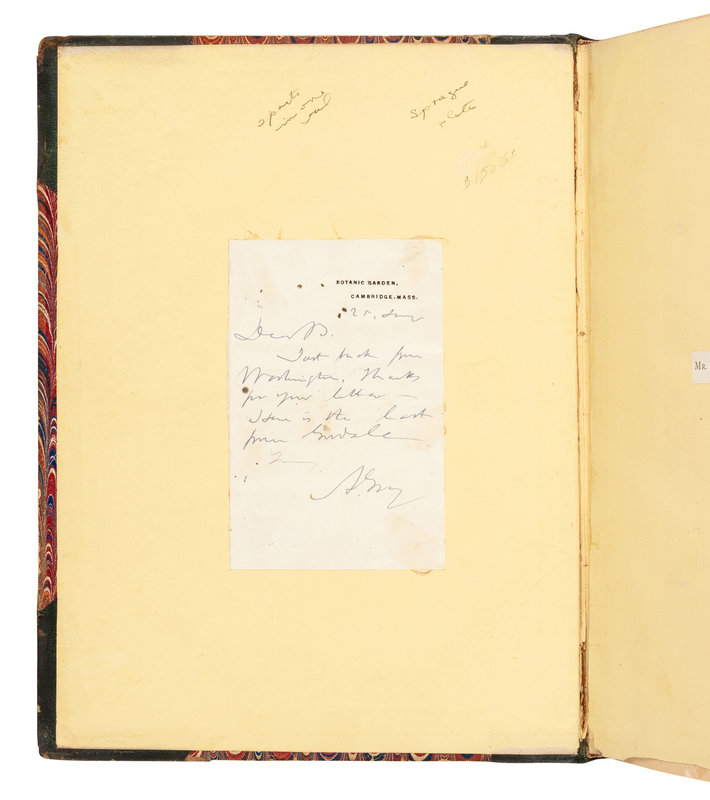 2 parts
in one
vol
Sprague
plate
$150
BOTANIC GARDEN,
CAMBRIDGE, MASS.
25,
Dear B.
Just back from
Washington. Thanks
for your letter —
Here is the last
from Goodale
A. Gray
MR.